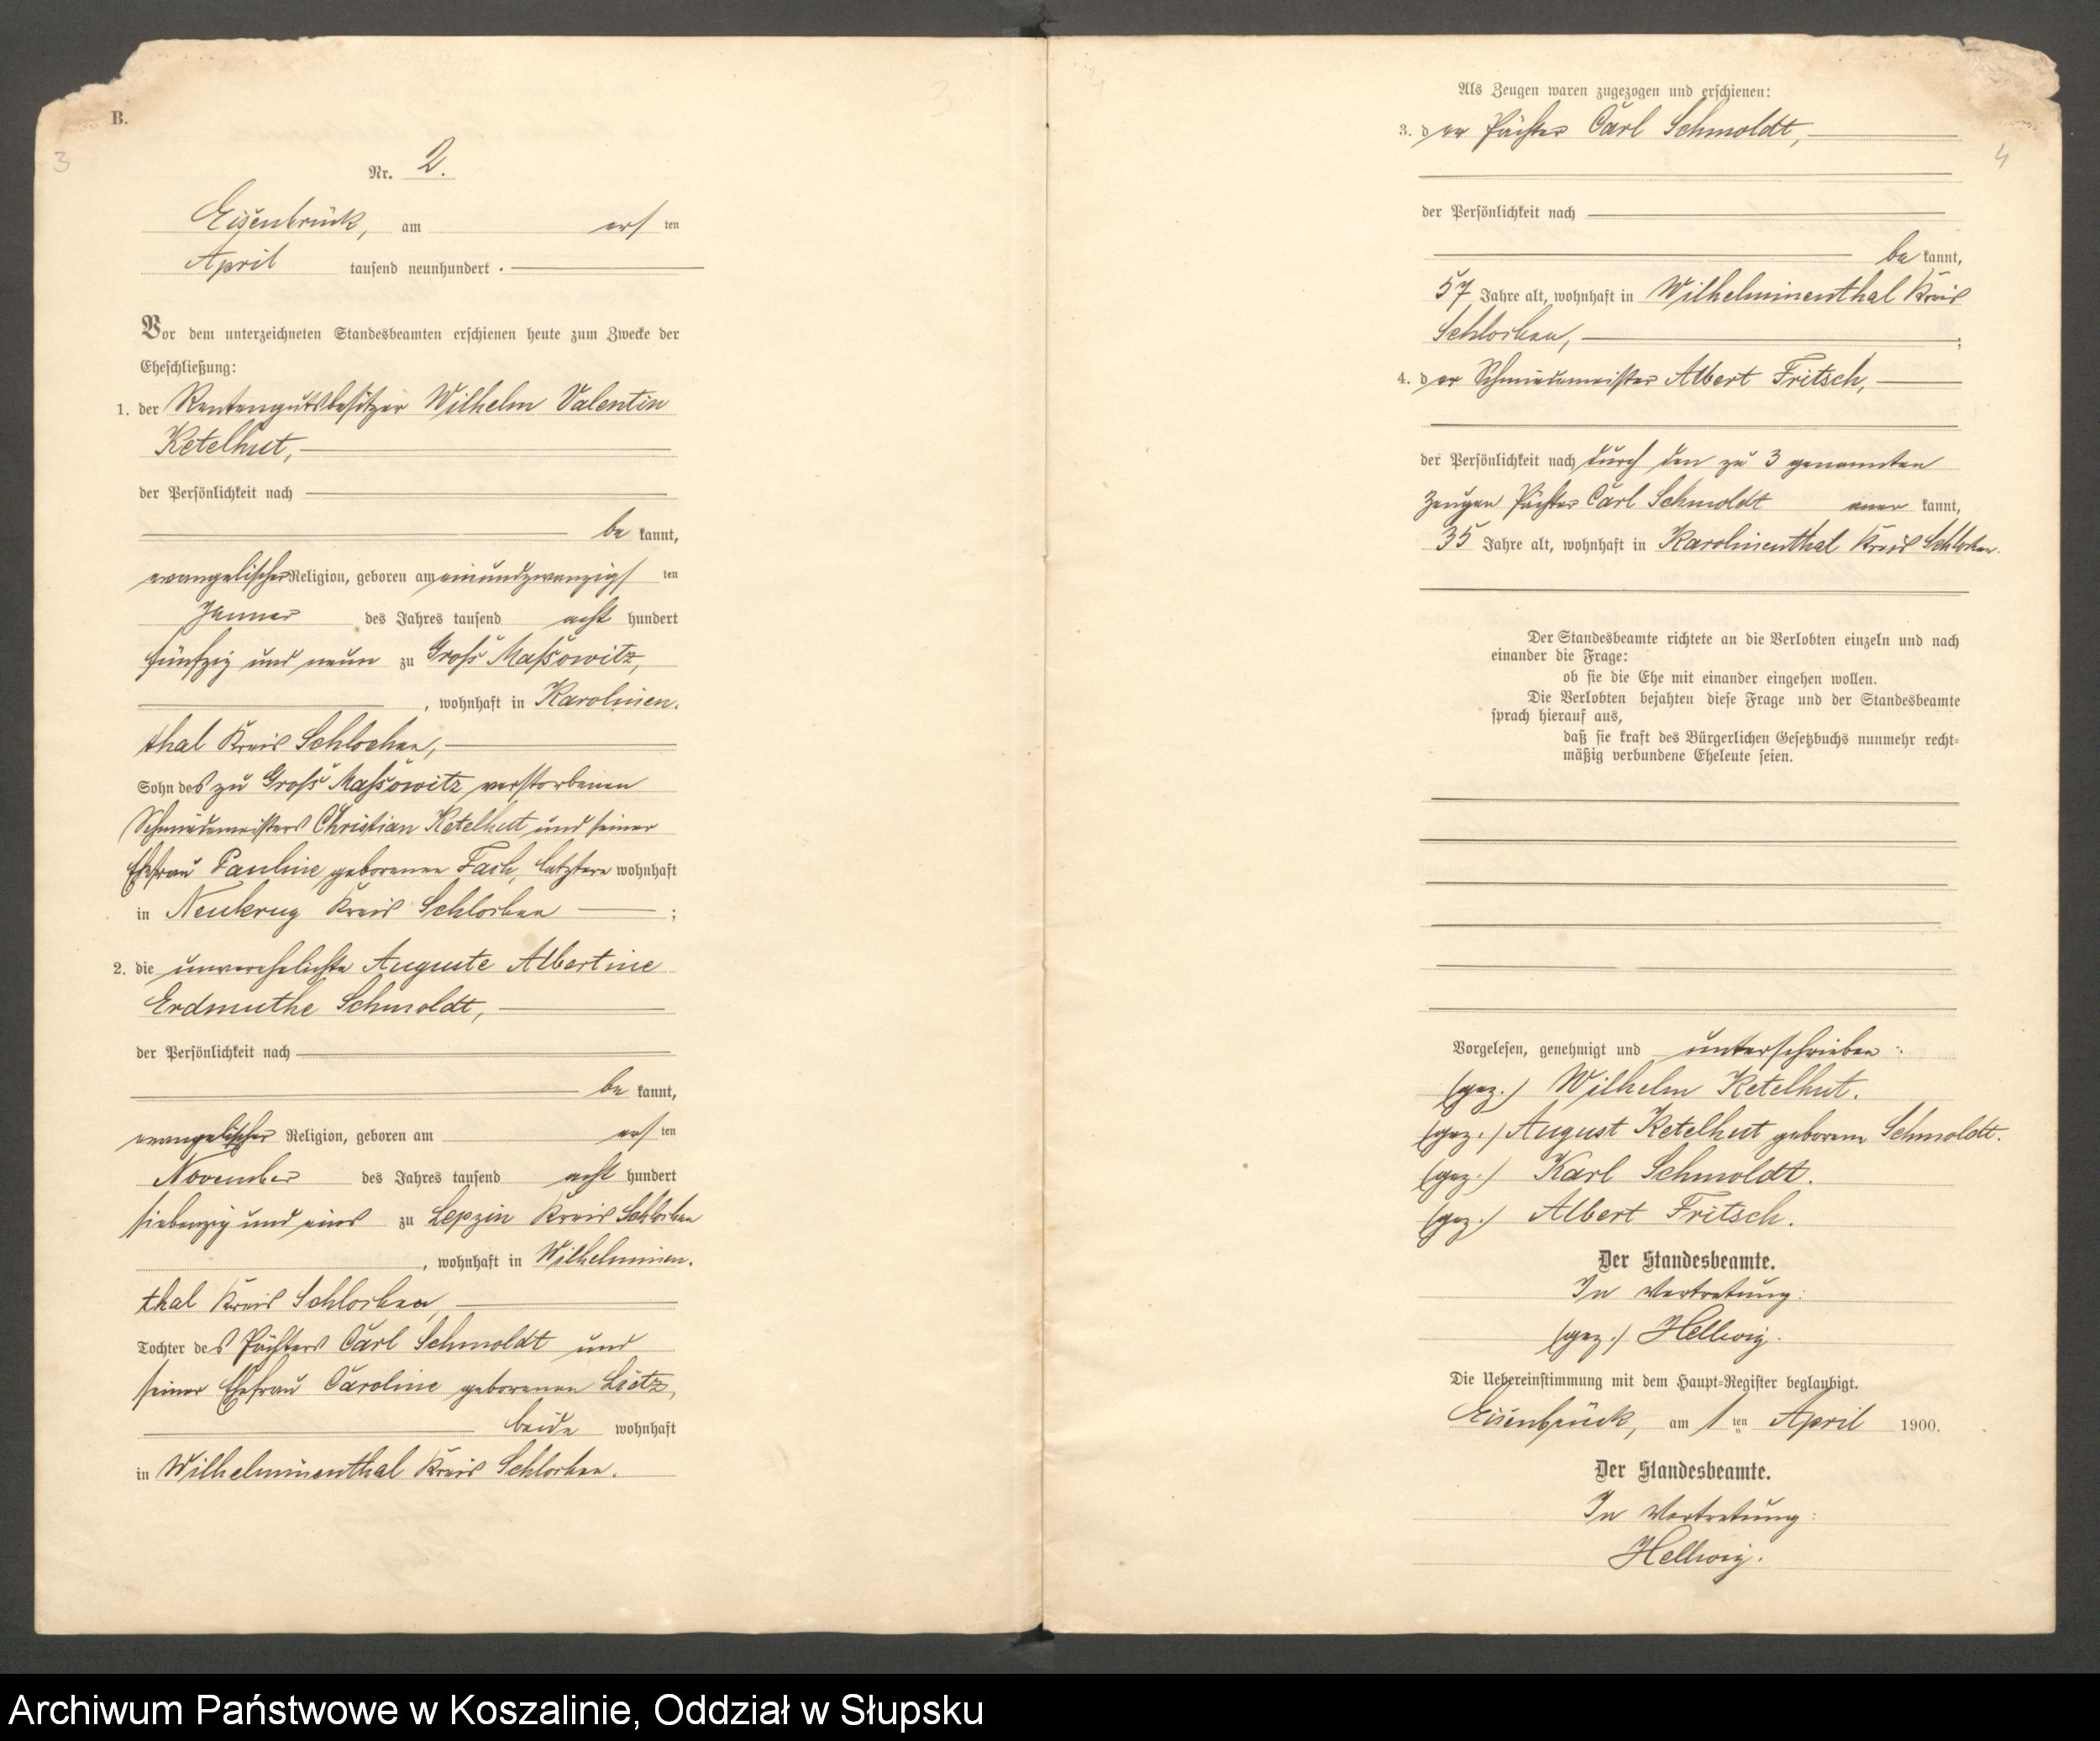 B.
3
Nr. 2.
Eisenbrück, am erſten
April tauſend neunhundert.
Vor dem unterzeichneten Standesbeamten erſchienen heute zum Zwecke der
Eheſchließung:
1. der Rentengutsbesitzer Wilhelm Valentin
Ketelhut,
der Perſönlichkeit nach
be kannt,
evangelischer Religion, geboren am einundzwanzigſten
Januar des Jahres tauſend acht hundert
fünfzig und neun zu Groß Maſsowitz,
, wohnhaft in Karolinen-
thal Kreis Schlochau,
Sohn des zu Groß Maſsowitz verstorbenen
Schmiedemeisters Christian Ketelhut und seiner
Ehefrau Pauline geborenen Fach, letztere wohnhaft
in Neukrug Kreis Schlochau ;
2. die unverehelichte Auguste Albertine
Erdmuthe Schmoldt,
der Perſönlichkeit nach
be kannt,
evangelischer Religion, geboren am erſten
November des Jahres tauſend acht hundert
siebenzig und eins zu Lepzin Kreis Schlochau
, wohnhaft in Wilhelminen-
thal Kreis Schlochau,
Tochter des Pächters Carl Schmoldt und
seiner Ehefrau Caroline geborenen Lietz,
beide wohnhaft
in Wilhelminenthal Kreis Schlochau.
Als Zeugen waren zugezogen und erſchienen:
3. der Pächter Carl Schmoldt,
4
der Perſönlichkeit nach
be kannt,
57 Jahre alt, wohnhaft in Wilhelminenthal Kreis
Schlochau, ;
4. der Schmiedemeister Albert Fritsch,
der Perſönlichkeit nach durch den zu 3 genannten
Zeugen Pächter Carl Schmoldt aner kannt,
35 Jahre alt, wohnhaft in Karolinenthal Kreis Schlochau.
Der Standesbeamte richtete an die Verlobten einzeln und nach
einander die Frage:
ob ſie die Ehe mit einander eingehen wollen.
Die Verlobten bejahten dieſe Frage und der Standesbeamte
ſprach hierauf aus,
daß ſie kraft des Bürgerlichen Geſetzbuchs nunmehr recht-
mäßig verbundene Eheleute ſeien.
Vorgeleſen, genehmigt und unterschrieben:
(gez.) Wilhelm Ketelhut.
(gez.) August Ketelhut geborene Schmoldt.
(gez.) Karl Schmoldt.
(gez.) Albert Fritsch.
Der Standesbeamte.
In Vertretung:
(gez.) Hellwig.
Die Uebereinſtimmung mit dem Haupt-Regiſter beglaubigt.
Eisenbrück, am 1ten April 1900.
Der Standesbeamte.
In Vertretung:
Hellwig.
Archiwum Państwowe w Koszalinie, Oddział w Słupsku